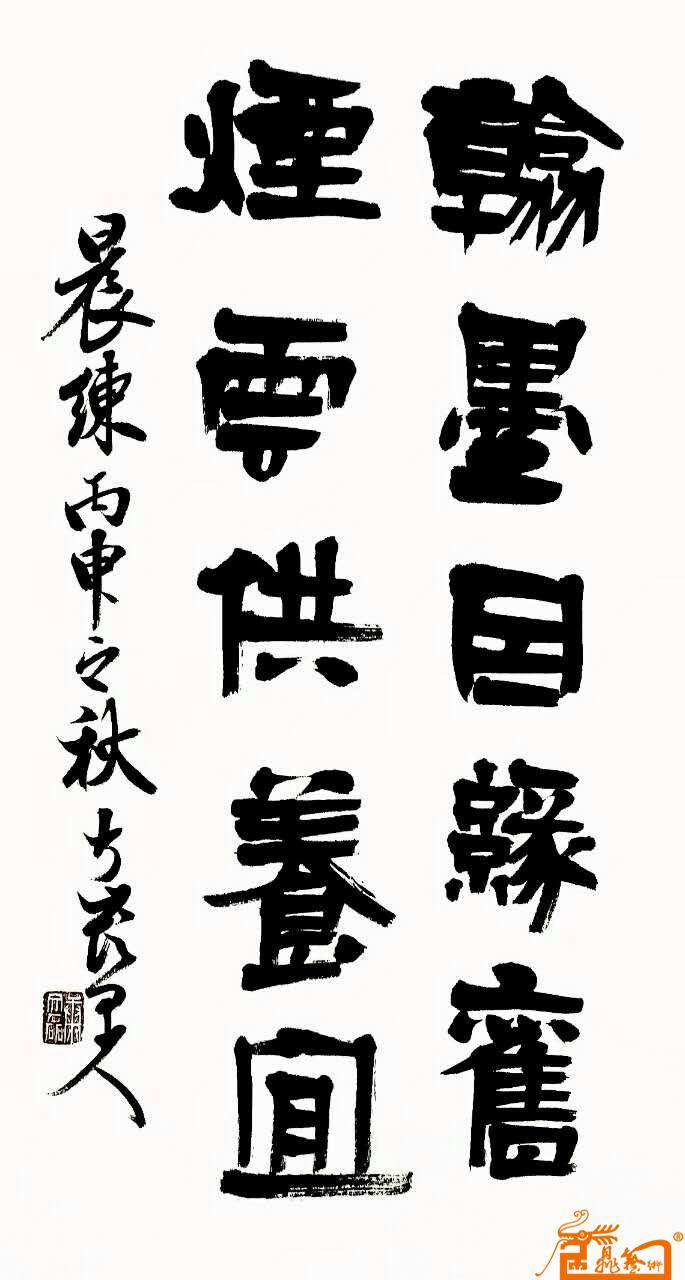 翰墨因緣舊
煙雲供養宜
晨練丙申之秋里人